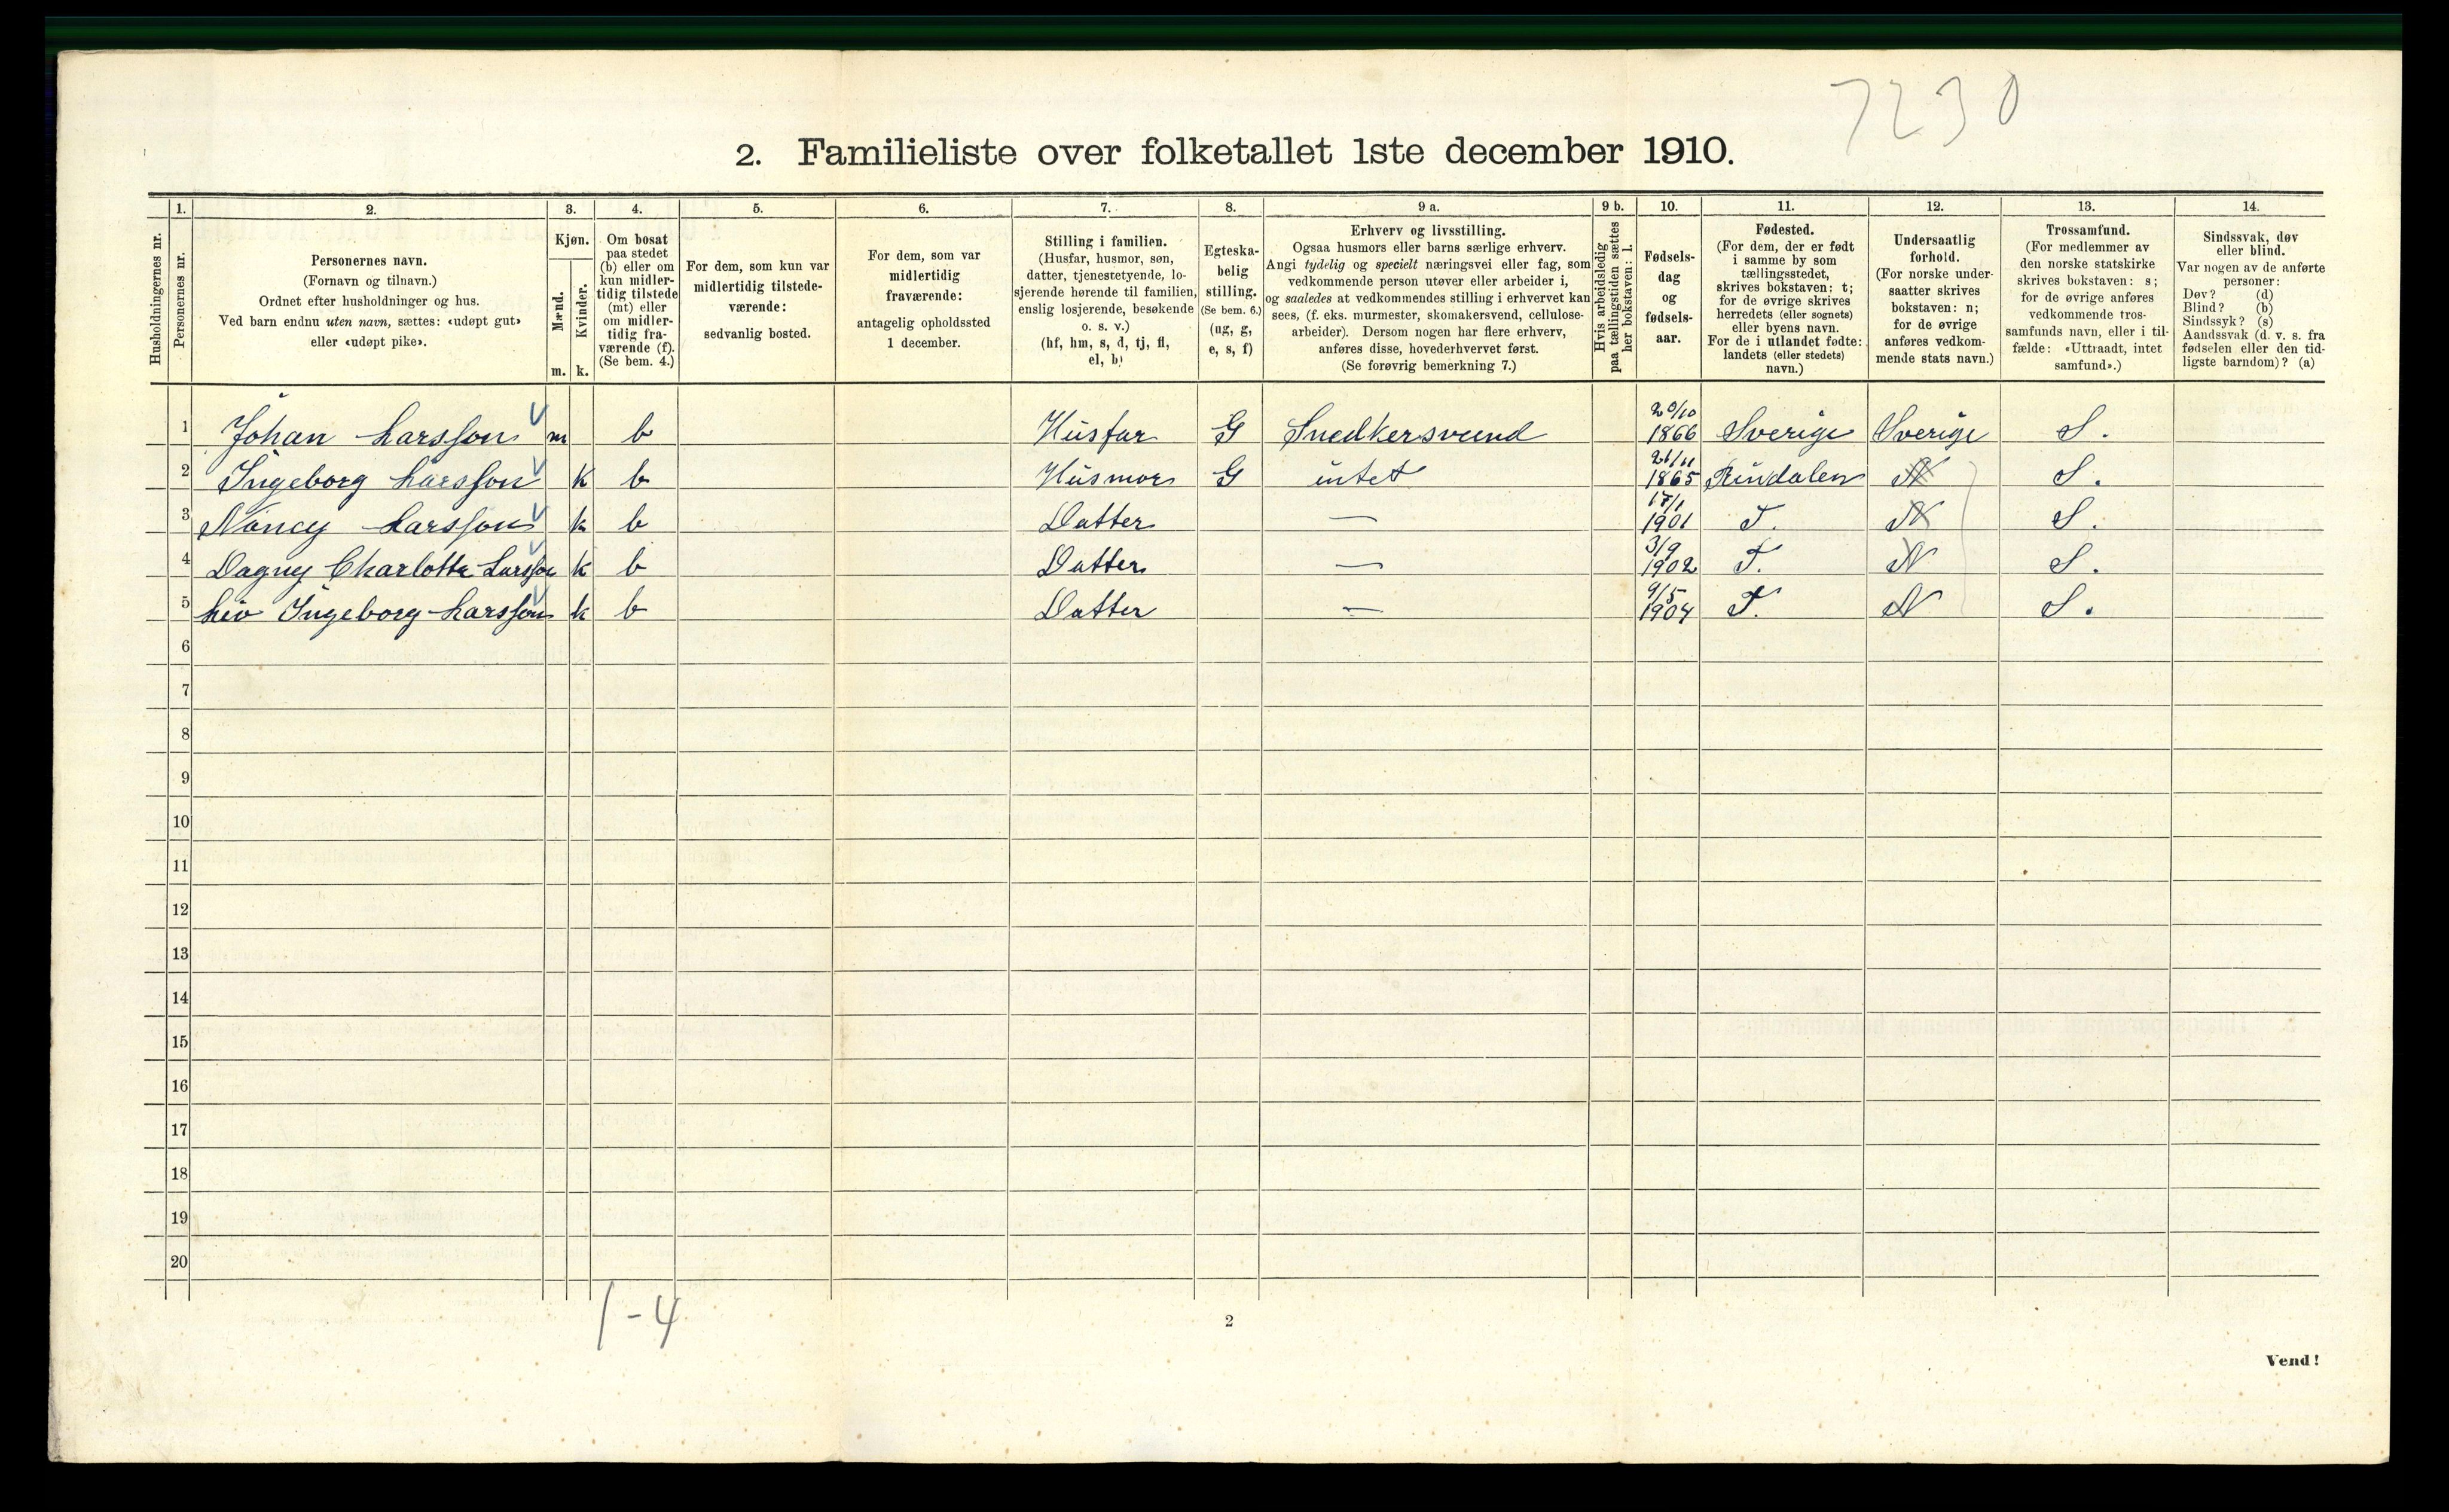 7230
2. Familieliste over folketallet 1ste december 1910.
Husholdningernes nr.
1.
Personernes nr.
2.
Personernes navn.
(Fornavn og tilnavn.)
Ordnet efter husholdninger og hus.
Ved barn endnu uten navn, sættes: «udøpt gut»
eller «udøpt pike».
3.
Kjøn.
Mænd.
Kvinder.
m. k.
4.
Om bosat
paa stedet
(b) eller om
kun midler-
tidig tilstede
(mt) eller
om midler-
tidig fra-
værende (f).
(Se bem. 4.)
5.
For dem, som kun var
midlertidig tilstede-
værende:
sedvanlig bosted.
6.
For dem, som var
midlertidig
fraværende:
antagelig opholdssted
1 december.
7.
Stilling i familien.
(Husfar, husmor, søn,
datter, tjenestetyende, lo-
sjerende hørende til familien,
enslig losjerende, besøkende
o. s. v.)
(hf, hm, s, d, tj, fl,
el, b)
8.
Egteska-
belig
stilling.
(Se bem. 6.)
(ug, g,
e, s, f)
9 a.
Erhverv og livsstilling.
Ogsaa husmors eller barns særlige erhverv.
Angi tydelig og specielt næringsvei eller fag, som
vedkommende person utøver eller arbeider i,
og saaledes at vedkommendes stilling i erhvervet kan
sees, (f. eks. murmester, skomakersvend, cellulose-
arbeider). Dersom nogen har flere erhverv,
anføres disse, hovederhvervet først.
(Se forøvrig bemerkning 7.)
9 b.
Hvis arbeidsledig
paa tællingstiden sættes
her bokstaven: l.
10.
Fødsels-
dag
og
fødsels-
aar.
11.
Fødested.
(For dem, der er født
i samme by som
tællingsstedet,
skrives bokstaven: t;
for de øvrige skrives
herredets (eller sognets)
eller byens navn.
For de i utlandet fødte:
landets (eller stedets)
navn.)
12.
Undersaatlig
forhold.
(For norske under-
saatter skrives
bokstaven: n;
for de øvrige
anføres vedkom-
mende stats navn.)
13.
Trossamfund.
(For medlemmer av
den norske statskirke
skrives bokstaven: s;
for de øvrige anføres
vedkommende tros-
samfunds navn, eller i til-
fælde: «Uttraadt, intet
samfund».)
14.
Sindssvak, døv
eller blind.
Var nogen av de anførte
personer:
Døv? (d)
Blind? (b)
Sindssyk? (s)
Aandssvak (d. v. s. fra
fødselen eller den tid-
ligste barndom)? (a)
1 Johan Larsson m b Husfar G Snedkersvend 20/10 1866 Sverige Sverige S.
2 Ingeborg Larsson k b Husmor G intet 21/11 1865 Rindalen N S.
3 Nancy Larsson k b Datter — 17/1 1901 T. N S.
4 Dagny Charlotte Larsson k b Datter — 3/9 1902 T. N S.
5 Liv Ingeborg Larsson k b Datter — 9/5 1904 T. N S.
6
7
8
9
10
11
12
13
14
15
16
17
18
19
20
1-4
2
Vend!